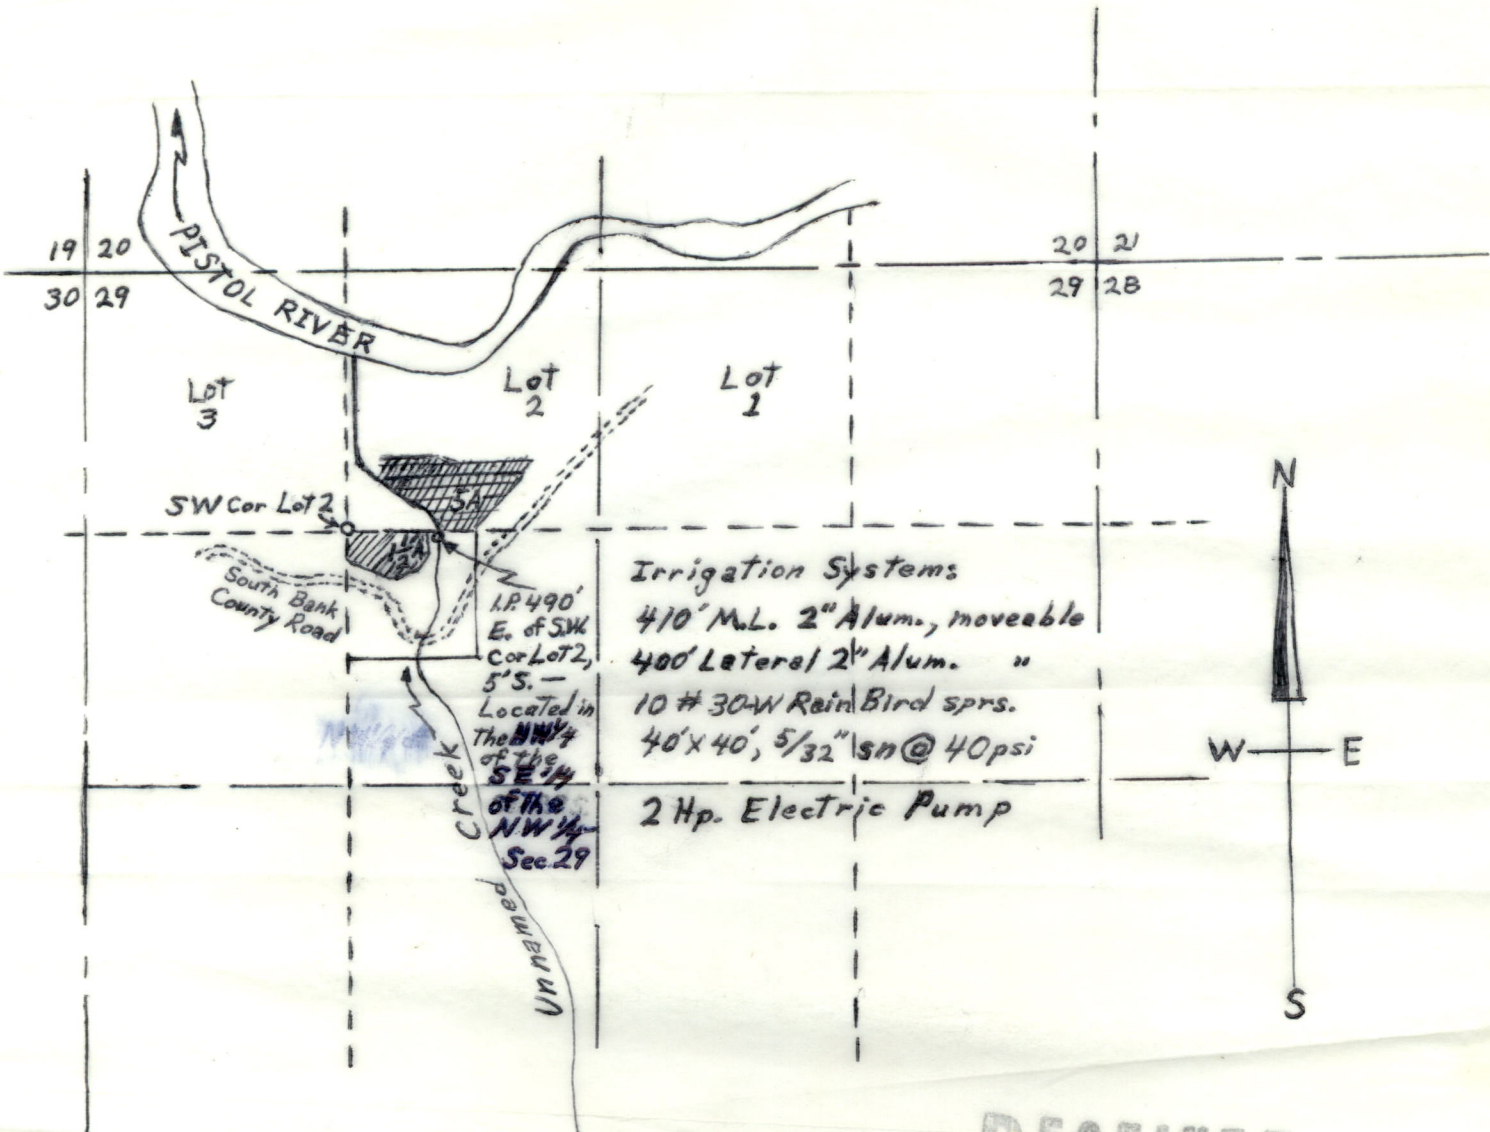 19 20
30 29
20 21
29 28
PISTOL RIVER
Lot
3
Lot
2
Lot
1
5A
SW Cor Lot 2
1 1/2 A
South Bank
County Road
I.P. 490'
E. of S.W.
Cor Lot 2,
5' S. —
Located in
The NW 1/4
of the
SE 1/4
of the
NW 1/4
Sec. 29
Irrigation Systems
410' M.L. 2" Alum., moveable
400' Lateral 2" Alum. "
10 # 30-W Rain Bird sprs.
40' x 40', 5/32" sn @ 40 psi
2 Hp. Electric Pump
Unnamed Creek
N
W E
S